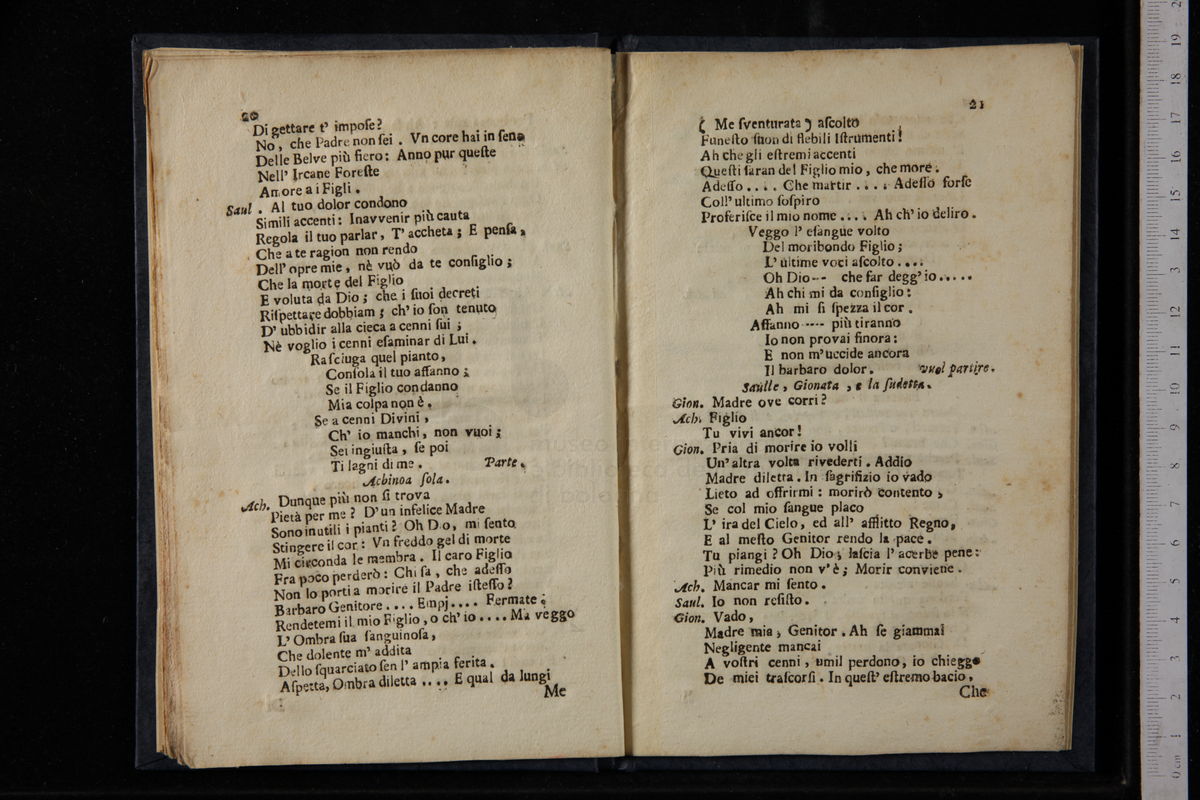 20
Di gettare t' impoſe?
No, che Padre non ſei. Vn core hai in ſeno
Delle Belve più fiero: Anno pur queſte
Nell' Ircane Foreſte
Amore a i Figli.
Saul. Al tuo dolor condono
Simili accenti: Inavvenir più cauta
Regola il tuo parlar, T' accheta; E penſa,
Che a te ragion non rendo
Dell' opre mie, nè vuò da te conſiglio;
Che la morte del Figlio
E voluta da Dio; che i ſuoi decreti
Riſpettare dobbiam; ch' io ſon tenuto
D' ubbidir alla cieca a cenni ſui;
Nè voglio i cenni eſaminar di Lui.
Raſciuga quel pianto,
Conſola il tuo affanno;
Se il Figlio condanno
Mia colpa non è.
Se a cenni Divini,
Ch' io manchi, non vuoi;
Sei ingiuſta, ſe poi
Ti lagni di me. Parte.
Achinoa ſola.
Ach. Dunque più non ſi trova
Pietà per me? D' un infelice Madre
Sono inutili i pianti? Oh Dio, mi ſento
Stingere il cor: Vn freddo gel di morte
Mi circonda le membra. Il caro Figlio
Fra poco perderò: Chi ſa, che adeſſo
Non lo porti a morire il Padre iſteſſo?
Barbaro Genitore.... Empj.... Fermate;
Rendetemi il mio Figlio, o ch' io.... Ma veggo
L' Ombra ſua ſanguinoſa,
Che dolente m' addita
Dello ſquarciato ſen l' ampia ferita.
Aſpetta, Ombra diletta.... E qual da lungi
Me
21
( Me ſventurata ) aſcolto
Funeſto ſuon di flebili Iſtrumenti!
Ah che gli eſtremi accenti
Queſti ſaran del Figlio mio, che more.
Adeſſo.... Che martir.... Adeſſo forſe
Coll' ultimo ſoſpiro
Proferiſce il mio nome.... Ah ch' io deliro.
Veggo l' eſangue volto
Del moribondo Figlio;
L' ultime voci aſcolto....
Oh Dio-- che far degg' io.....
Ah chi mi da conſiglio:
Ah mi ſi ſpezza il cor.
Affanno ---- più tiranno
Io non provai finora:
E non m' uccide ancora
Il barbaro dolor. vuol partire.
Saulle, Gionata, e la ſudetta.
Gion. Madre ove corri?
Ach. Figlio
Tu vivi ancor!
Gion. Pria di morire io volli
Un' altra volta rivederti. Addio
Madre diletta. In ſagrifizio io vado
Lieto ad offrirmi: morirò contento,
Se col mio ſangue placo
L' ira del Cielo, ed all' afflitto Regno,
E al meſto Genitor rendo la pace.
Tu piangi? Oh Dio, laſcia l' acerbe pene:
Più rimedio non v' è; Morir conviene.
Ach. Mancar mi ſento.
Saul. Io non reſiſto.
Gion. Vado,
Madre mia, Genitor. Ah ſe giammai
Negligente mancai
A voſtri cenni, umil perdono, io chieggo
De miei traſcorſi. In queſt' eſtremo bacio,
Che